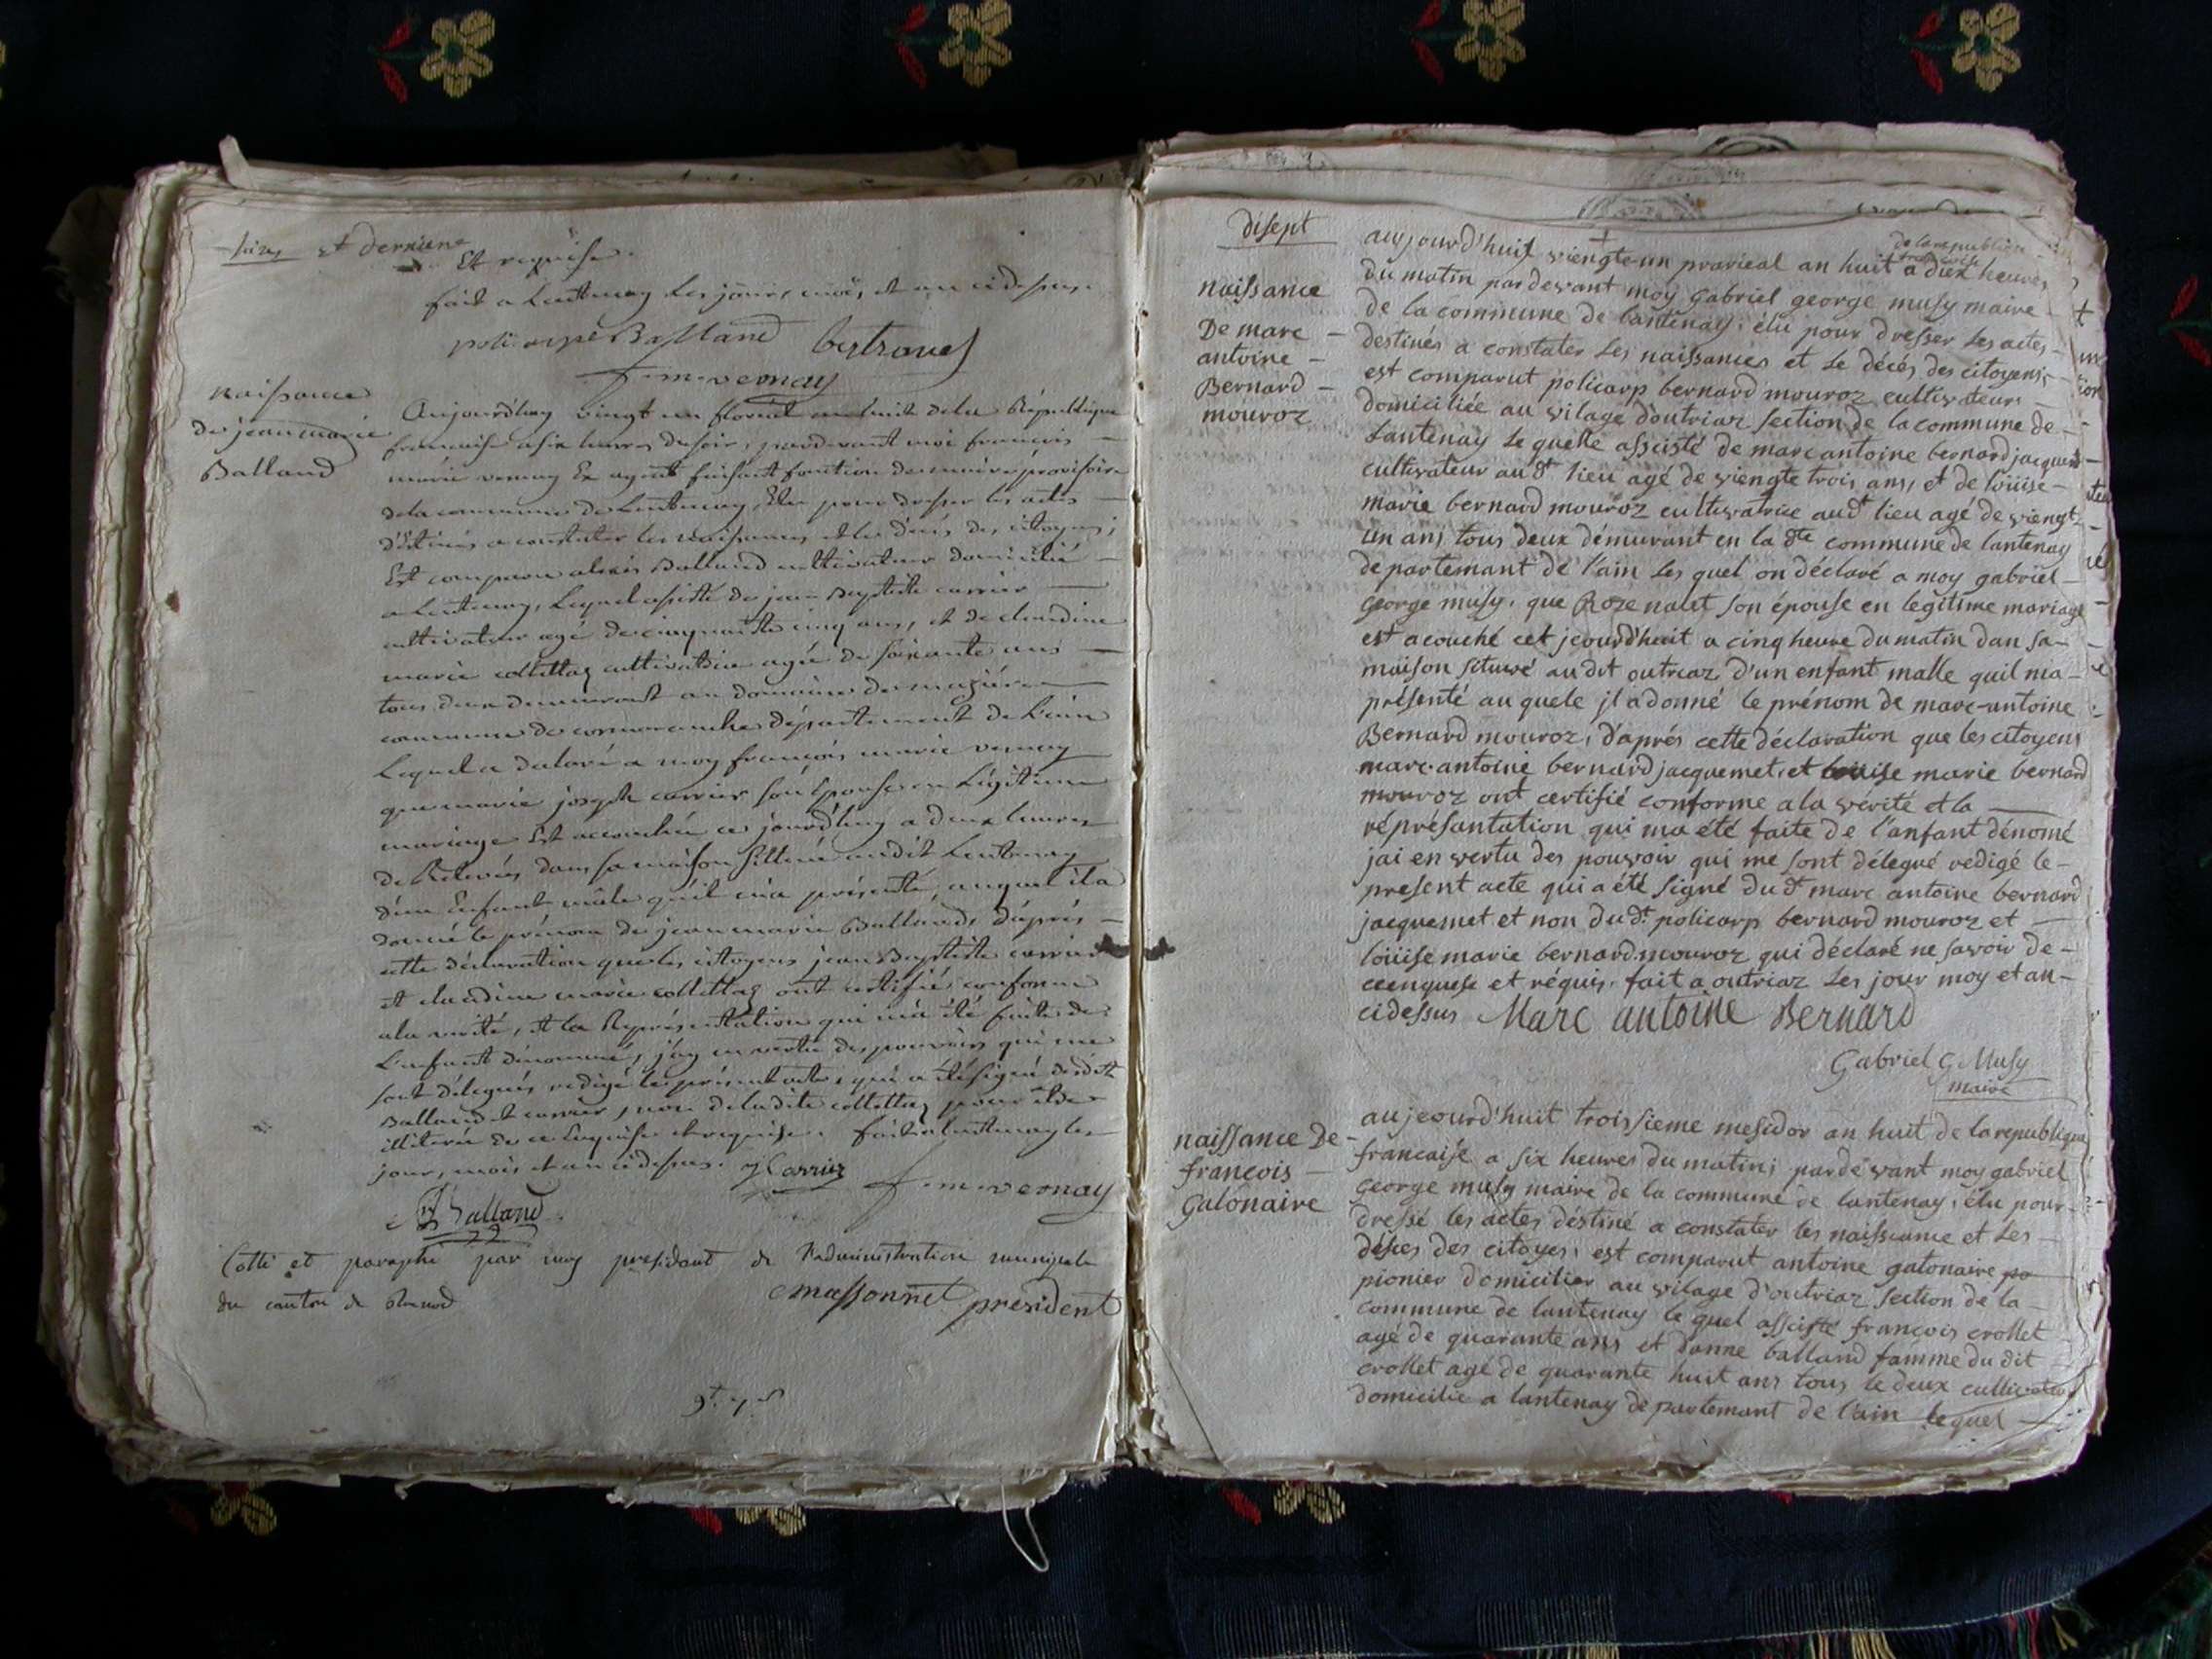 et derniene
Et requise.
fait a Lentenay les jour, mois, et an cidessus.
policarpe Balland bertrand
f. m. vernay
naissance
de jean marie
Balland
Aujourd'huy vingt un floreal an huit dela République
francaise a six heures du soir, pardevant moi francois
marie vernay Ex agent faisant fonction de maire provisoire
dela commune de Lentenay, Elu pour dresser les actes
déstinés a constater les naissances et les décés des citoyens,
Est comparu alexis Balland cultivateur domicilié
a Lentenay, Lequel assisté de jean Baptiste carrier
cultivateur agé de cinquante cinq ans, et de claudine
marie collettaz cultivatrice agée de soixante ans
tous deux demeurant au domaine de maziére
commune de cormoranche département de L'ain
Lequel a declaré a moy francois marie vernay
que marie josephe carrier son Epouse en Légitime
mariage Est accouchée ce jourd'huy a deux heures
de Relevée dans sa maison sittuée audit Lentenay
d'un Enfant mâle qu'il m'a présenté, auquel il a
donné le prénom de jean marie Balland, d'aprés
cette déclaration que les citoyens jean Baptiste carrier
et claudine marie collettaz ont certifié conforme
ala verité, et la Représentation qui m'a été faite de
L'enfant dénommé, j'ay en vertu des pouvoirs qui me
sont délegués redigé le présent acte, qui a été signé desdits
Balland et carrier, non deladite collettaz pour être
illiterée de ce Enquise et requise. fait a Lentenay les
jour, mois et an cidessus. J Carrier
f. m. vernay
A Balland
Cotté et paraphé par moy president de l'administration municipale
du canton de Brenod
emassonnet président
disept
naissance
De marc
antoine
Bernard
mouroz
aujourd'huit viengte-un prarieal an huit de la republique francaise a diex heures
du matin pardevant moy gabriel george musy maire
de la commune de lantenay, élu pour dresser les actes
destinés a constater les naissances et le décés des citoyens,
est comparut policarp bernard mouroz cultivateur
domiciliée au vilage doutriaz section de la commune de
Lantenay le quelle asscisté de marc antoine bernard jacquemet
cultivateur au dt lieu agé de viengte trois ans, et de loüise
marie bernard mouroz cultivatrice audt lieu agé de viengt
un ans tous deux démurant en la dte commune de lantenay
departemant de l'ain les quel on déclaré a moy gabriel
george musy, que Roze nalet son épouse en legitime mariage
est acouché cet jeourd'huit a cinq heure du matin dan sa
maison situvé au dit outriaz d'un enfant malle quil ma
présenté au quele jl a donné le prénom de marc-antoine
Bernard mouroz, d'aprés cette déclaration que les citoyens
marc-antoine bernard jacquemet, et louise marie bernard
mouroz ont certifié conforme a la vérité et la
réprésantation qui ma été faite de l'anfant dénomé
jai en vertu des pouvoir qui me sont délegué redigé le
present acte qui a été signé du dt marc antoine bernard
jacquemet et non du dt policarp bernard mouroz et
loüise marie bernard mouroz qui déclaré ne savoir de
ceenquese et réquis. fait a outriaz les jour moy et an
cidessus Marc antoine Bernard
Gabriel G Musy
maire
naissance De
françois
Galonaire
aujeourd'huit troissieme mesidor an huit de la republique
francaise a six heures du matin; pardévant moy gabriel
george musy maire de la commune de lantenay, élu pour
dressé les actes déstiné a constater les naissance et les
déses des citoyes, est comparut antoine galonaire po
pionier domicilier au vilage d'outriaz section de la
commune de lantenay le quel asscisté françois crollet
agé de quarante ans et danne balland famme du dit
crollet agé de quarante huit ans tous le deux cultivateur
domicilié a lantenay departemant de l'ain lequel